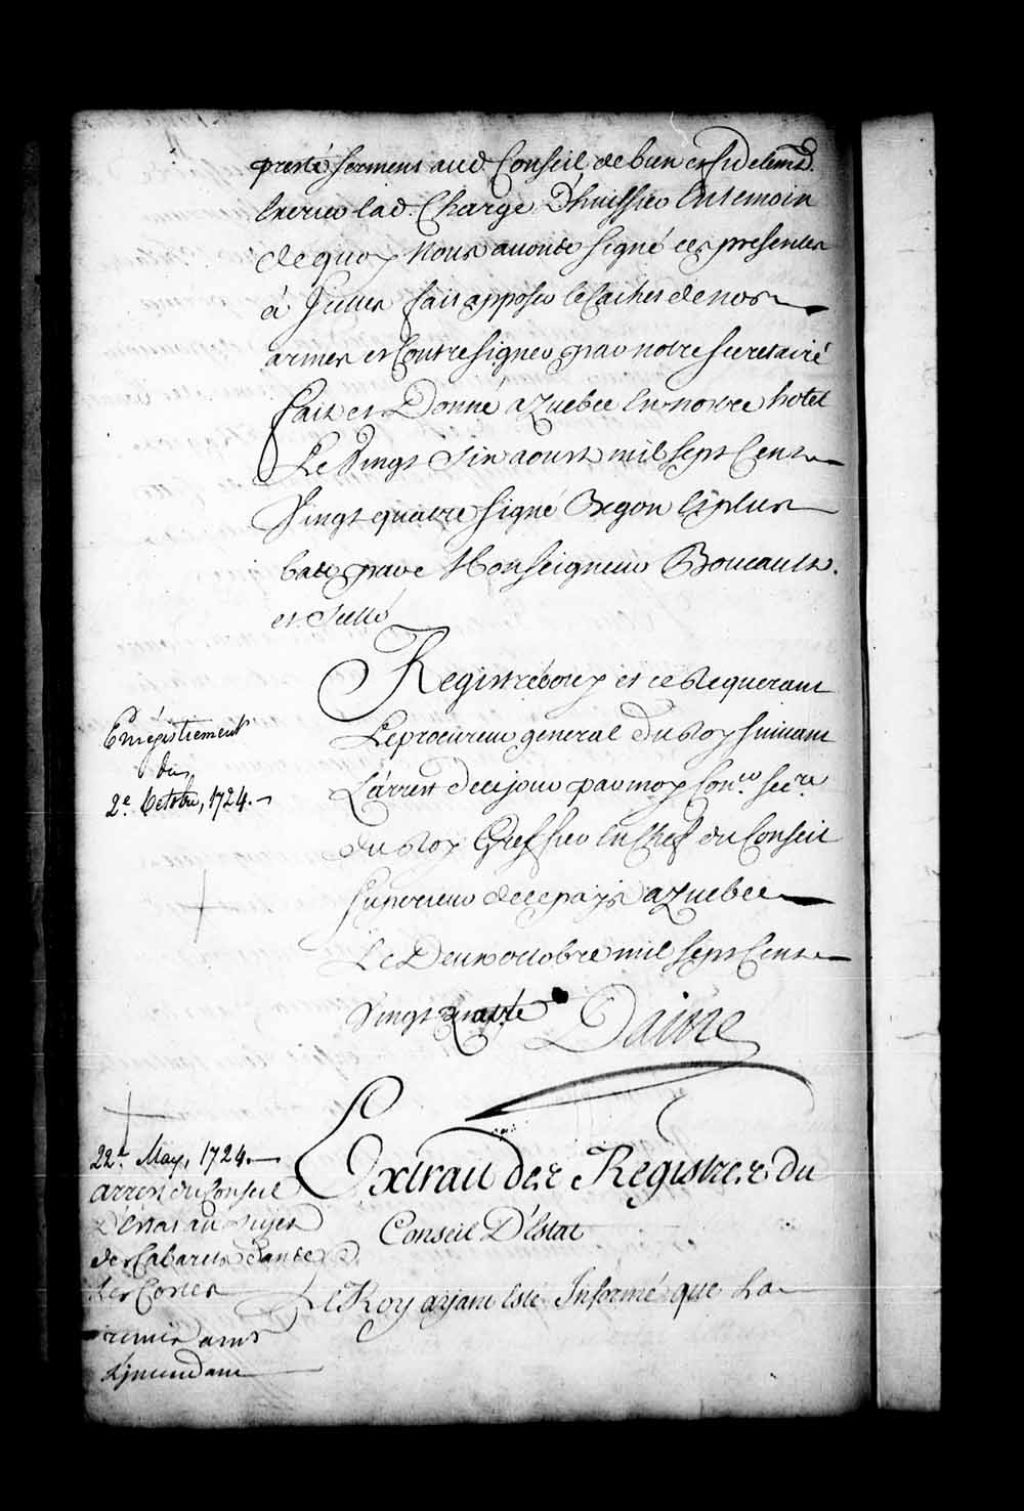 presté serment aud. Conseil de bien et fidelemt.
Exercer lad. Charge D'huissier En temoin
de quoy Nous avons signé ces presentes
à Icelles fait apposer le Cachet de nos
armes et Contresigner par notre secretaire
fait et Donné a Quebec En nostre hotel
Le Vingt Six aoust mil sept Cent
Vingt quatre signé Begon Et plus
bas par Monseigneur Boucault.
et scellé
Registré ouy et ce Requerant
Le procureur general Du Roy suivant
L'arrest de ce jour par moy Coner. secre.
du Roy Greffier En Chef du Conseil
superieur de ce pays a Quebec
Le Deux octobre mil sept Cent
Vingt quatre Daine
Enrégistrement
du
2e. Octobre, 1724.
Extrait des Registres du
Conseil D'Estat
Le Roy ayant Esté Informé que la
22e. May, 1724.
arrest du Conseil
D'Estat au sujet
des Cabarets dans
Les Costes